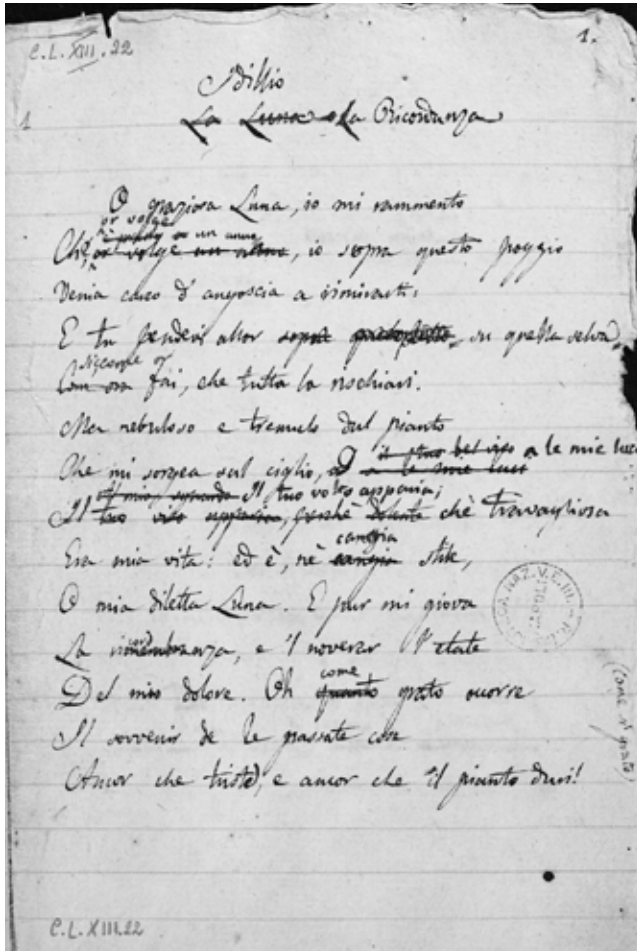 C.L.XIII.22
1.
Idillio
1
La Luna o La Ricordanza
O graziosa Luna, io mi rammento
or volge
or un anno
Che, or volge un anno, io sopra questo poggio
Venia carco d'angoscia a rimirarti:
E tu pendevi allor sopra su quella selva,
Siccome or
Com ora fai, che tutta la rischiari.
Ma nebuloso e tremulo dal pianto
il tuo bel viso a le mie luci
Che mi sorgea sul ciglio, a le mie luci
Il tuo volto apparia;
Il tuo viso apparia, perchè dolente chè travagliosa
cangia
Era mia vita: ed è, nè cangia stile,
O mia diletta Luna. E pur mi giova
cor
La rimembranza, e il noverar l'etate
come
Del mio dolore. Oh quanto grato occorre
(come sì grato)
Il sovvenir de le passate cose
Ancor che triste, e ancor che il pianto duri!
C.L.XIII.22